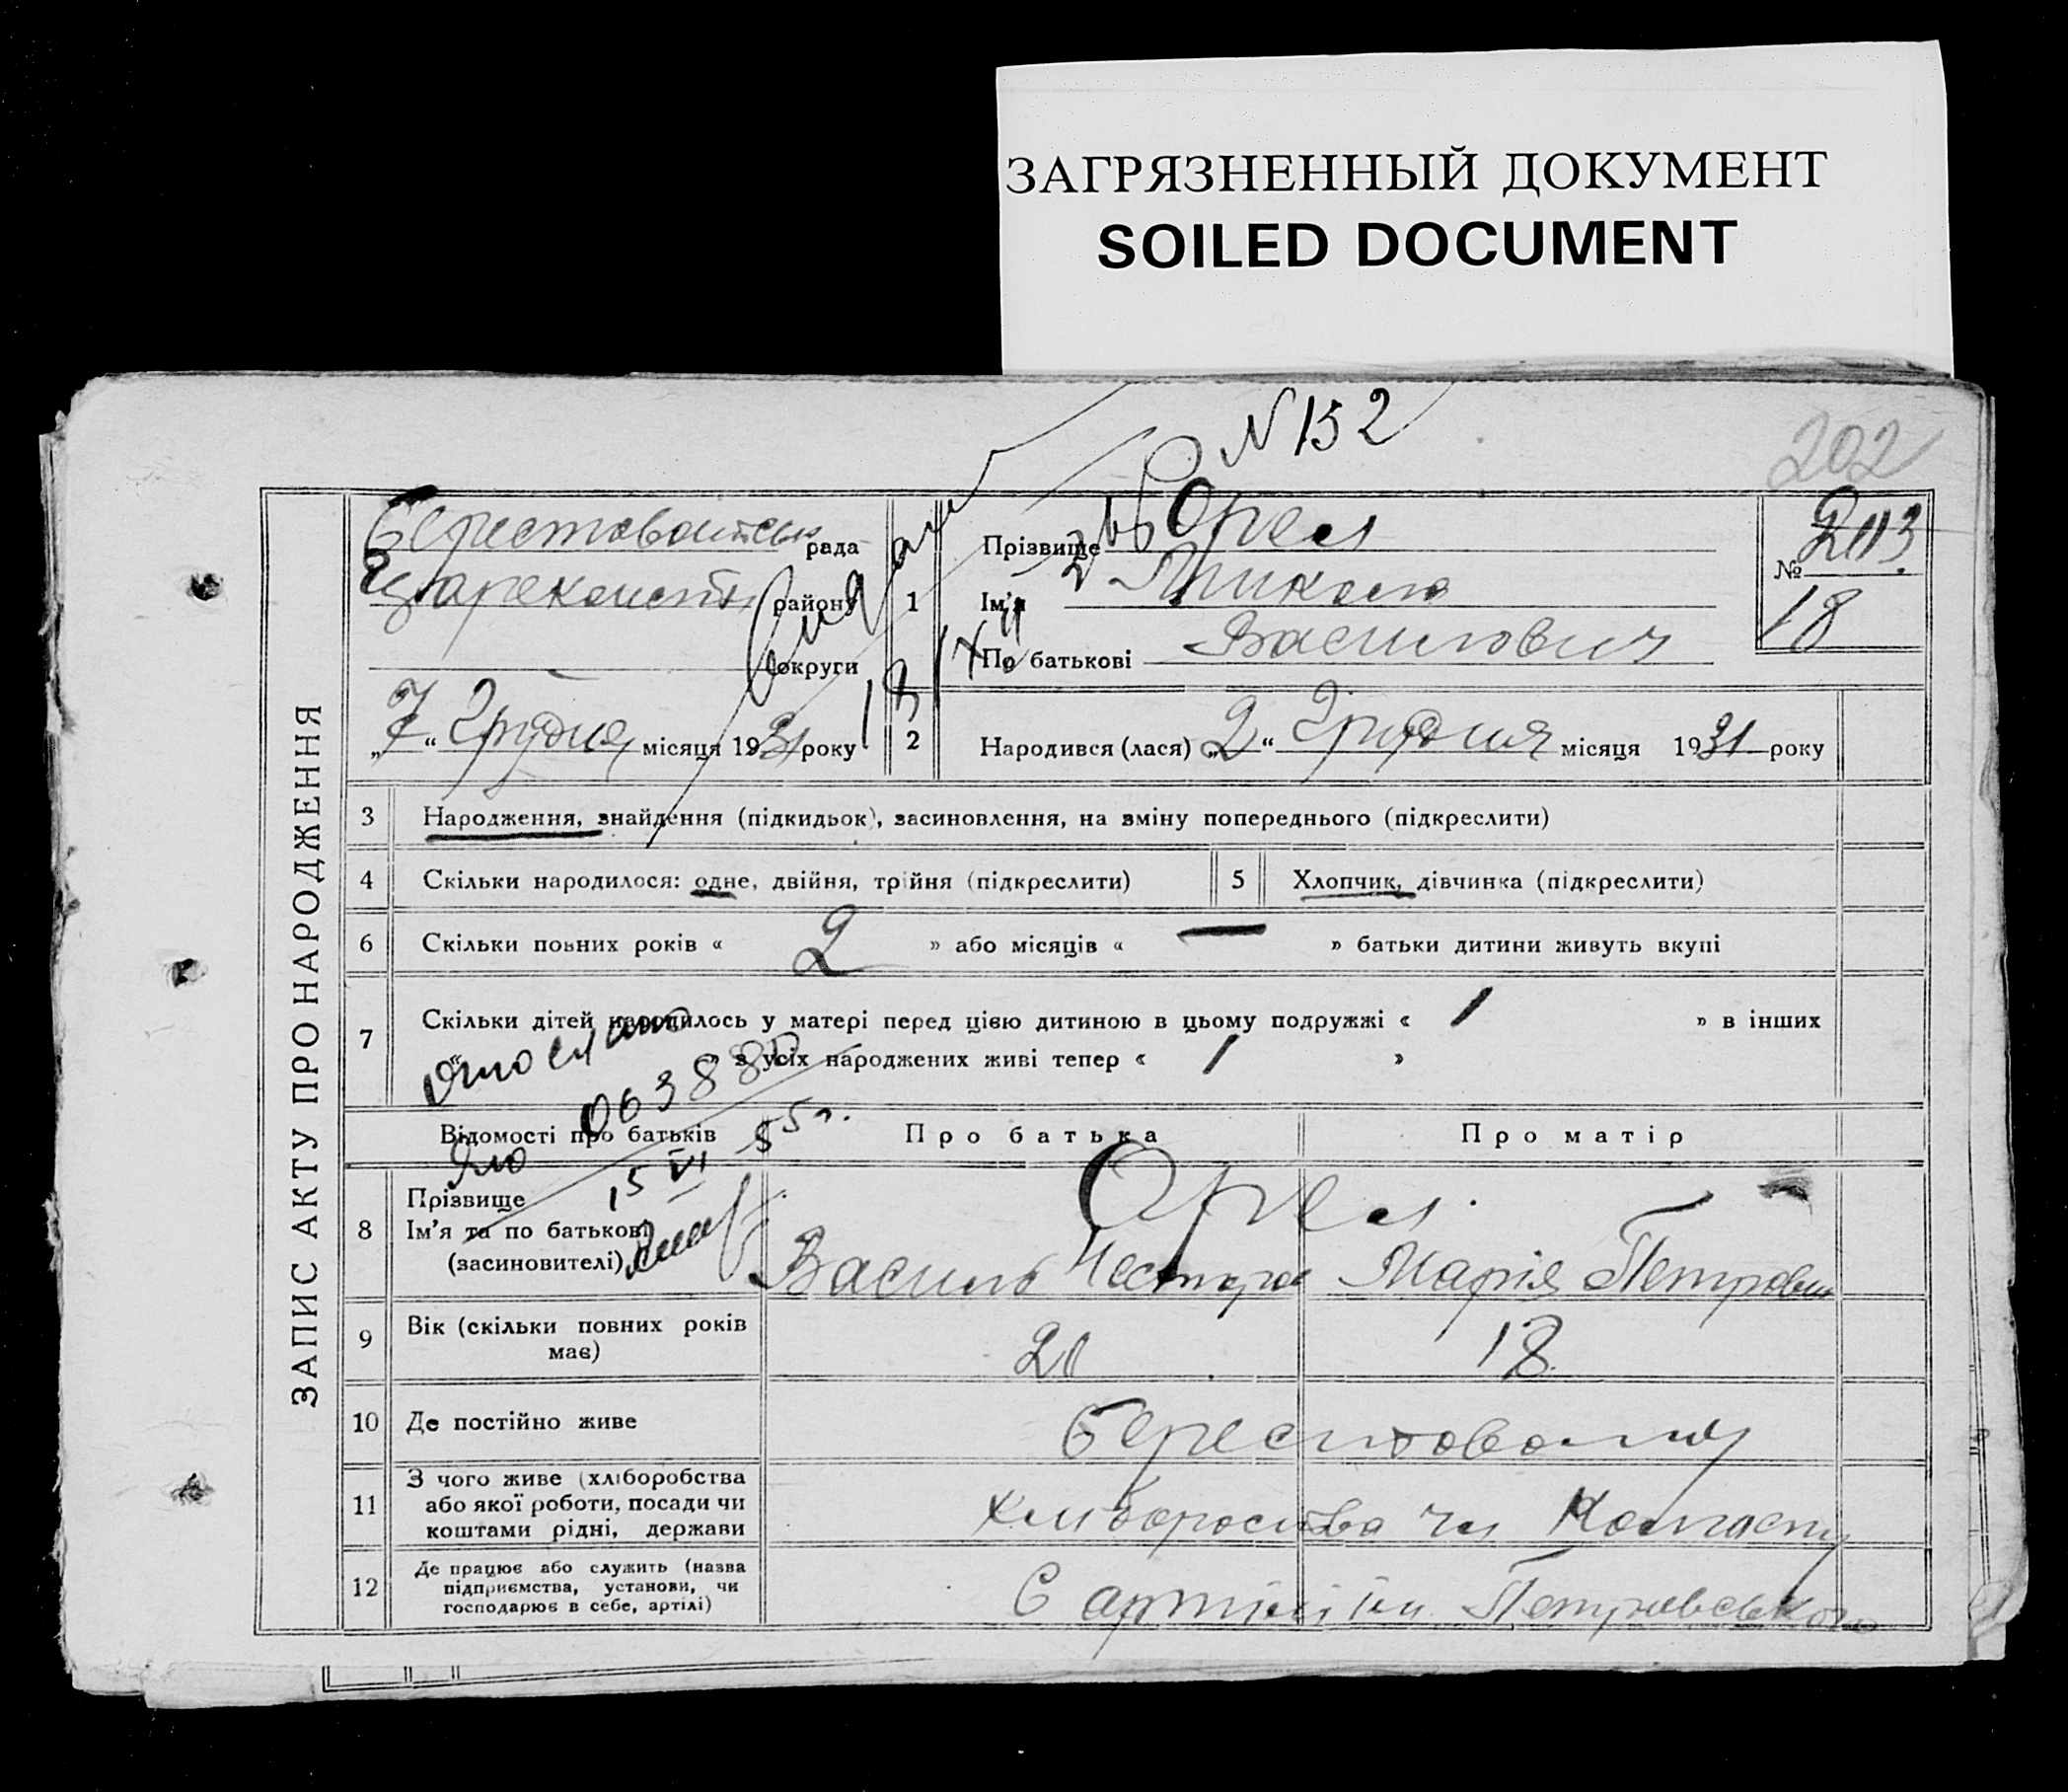 ЗАГРЯЗНЕННЫЙ ДОКУМЕНТ
SOILED DOCUMENT
N 152
202
ЗАПИС АКТУ ПРО НАРОДЖЕННЯ
рада
району
округи
„7“ Грудня місяця 1931 року
1
Прізвище Орел
Ім'я Микола
По батькові Василович
№ 203
18
2
Народився (лася) „2“ Грудня місяця 1931 року
3 Народження, знайдення (підкидьок), засиновлення, на зміну попереднього (підкреслити)
4 Скільки народилося: одне, двійня, трійня (підкреслити)
5 Хлопчик, дівчинка (підкреслити)
6 Скільки повних років « 2 » або місяців « — » батьки дитини живуть вкупі
7 Скільки дітей народилось у матері перед цією дитиною в цьому подружжі « 1 » в інших
« » з усіх народжених живі тепер « 1 »
15 VI 55 г.
Відомості про батьків
Про батька
Про матір
8 Прізвище
Ім'я та по батькові
(засиновителі)
Орел
Василь Нестеров
Марія Петровн
9 Вік (скільки повних років має)
20
18
10 Де постійно живе
Берестовому
11 З чого живе (хліборобства
або якої роботи, посади чи
коштами рідні, держави
12 Де працює або служить (назва
підприємства, установи, чи
господарює в себе, артілі)
Є артілі ім. Петровського